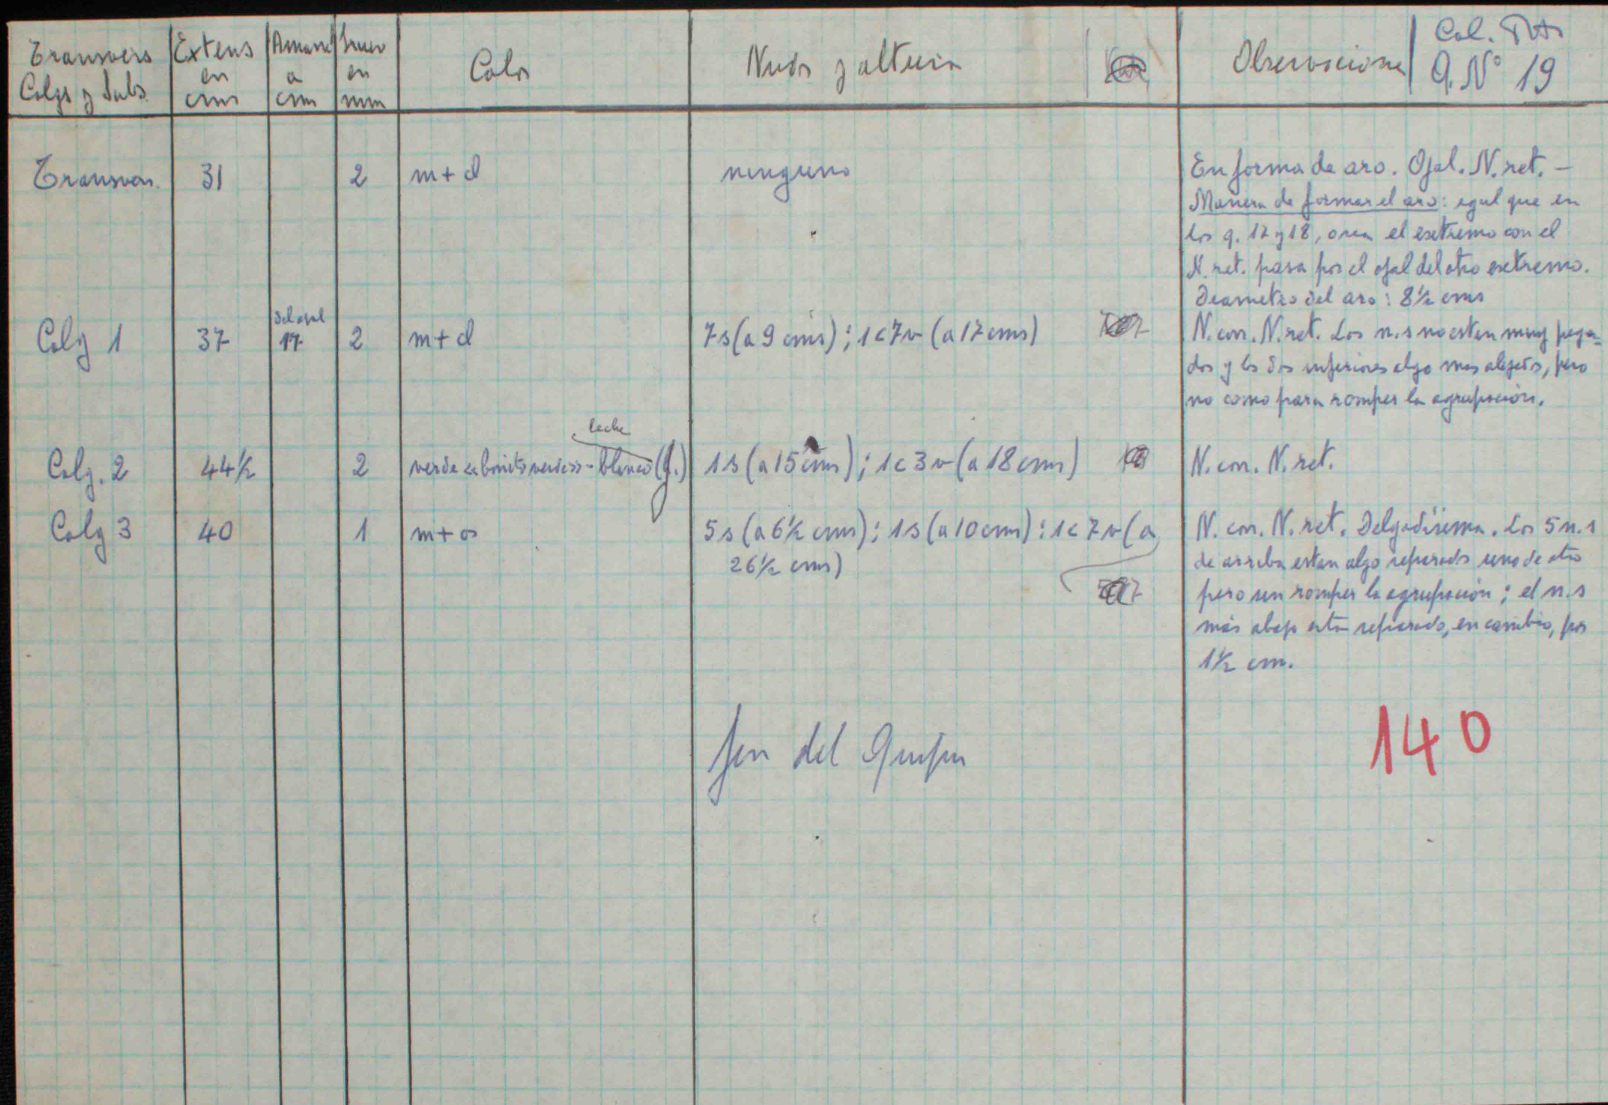 Transvers Colgs y Subs
Extens en cms
Amarre a cms
Grueso en mm
Color
Nudos y altura
Observaciones
Col.
Q. N° 19
Transvers. 31 2 m+d ninguno
En forma de aro. Ojal. N. ret. –
Manera de formar el aro: igual que en
los q. 17 y 18, o sea el extremo con el
N. ret. pasa por el ojal del otro extremo.
Diametro del aro: 8½ cms
Colg 1 37 del ojal 17 2 m+d 7s (a 9 cms); 1c7v (a 17 cms)
N. con. N. ret. Los n.s no estan muy pega-
dos y los dos inferiores algo mas alejados, pero
no como para romper la agrupación.
leche
Colg. 2 44½ 2 verde - blanco (j.) 1s (a 15 cms); 1c3v (a 18 cms) N. con. N. ret.
Colg 3 40 1 m+os 5s (a 6½ cms); 1s (a 10 cms); 1c7v (a
26½ cms)
N. con. N. ret. Delgadísima. Los 5 n.s
de arriba estan algo separados uno de otro
pero sin romper la agrupación; el n.s
más abajo esta separado, en cambio, por
1½ cm.
fin del Quipu
140